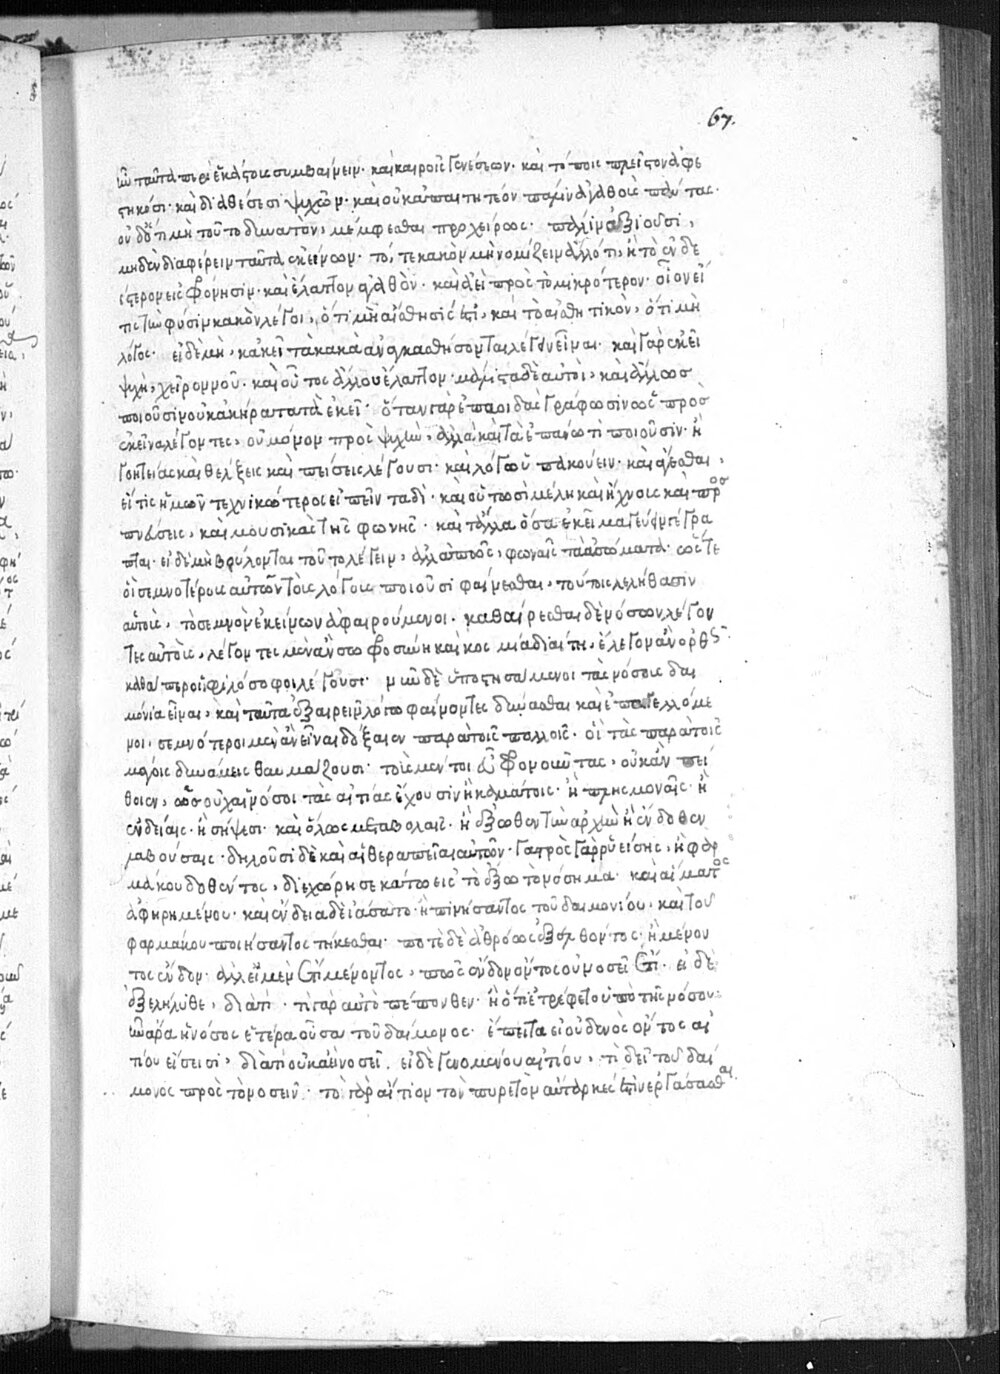 ὧν ταῦτα περὶ ἑκάστους συμβαίνειν· καὶ καιροῖς γενέσεων· καὶ τόποις πλεῖστον ἀφε
στηκόσι· καὶ διαθέσεσι ψυχῶν· καὶ οὐκ ἀπαιτητέον πάλιν ἀγαθοὺς πάντας·
οὐδ' ὅτι μὴ τοῦτο δυνατὸν, μέμφεσθαι προχείρως· πάλιν ἀξιοῦσι,
μηδὲν διαφέρειν ταῦτα ἐκείνων· τό, τε κακὸν μὴ νομίζειν ἄλλό τι, ἢ τὸ ἐνδε
έστερον εἰς φρόνησιν· καὶ ἔλαττον ἀγαθὸν· καὶ ἀεὶ πρὸς τὸ μικρότερον· οἷον εἴ
τις τὴν φύσιν κακὸν λέγοι, ὅτι μὴ αἴσθησίς ἐστι, καὶ τὸ αἰσθητικὸν, ὅτι μὴ
λόγος· εἰ δὲ μὴ, κἀκεῖ τὰ κακὰ ἀναγκασθήσονται λέγειν εἶναι· καὶ γὰρ ἐκεῖ
ψυχὴ, χεῖρον νοῦ· καὶ οὗτος ἄλλου ἔλαττον· μάλιστα δὲ αὐτοὶ, καὶ ἄλλως
ποιοῦσιν οὐκ ἀκήρατα τὰ ἐκεῖ· ὅταν γὰρ ἐπαοιδὰς γράφωσιν ὡς πρὸς
ἐκεῖνα λέγοντες, οὐ μόνον πρὸς ψυχὴν, ἀλλὰ καὶ τὰ ἐπάνω τί ποιοῦσιν· ἢ
γοητείας καὶ θέλξεις καὶ πείσεις λέγουσι· καὶ λόγῳ ὑπακούειν· καὶ ἄγεσθαι,
εἴ τις ἡμῶν τεχνικώτερος εἰπεῖν ταδὶ· καὶ οὑτωσὶ μέλη καὶ ἤχους καὶ προσ
πνεύσεις, καὶ μουσικὰς τῆς φωνῆς· καὶ τἄλλα ὅσα ἐκεῖ μαγεύειν γέγρα
πται· εἰ δὲ μὴ βούλονται τοῦτο λέγειν, ἀλλὰ πῶς, φωναῖς τὰ ἀσώματα· ὥστε
οἷ σεμνοτέρους αὐτῶν τοὺς λόγους ποιοῦσι φαίνεσθαι, τούτοις λελήθασιν
αὑτοὺς, τὸ σεμνὸν ἐκείνων ἀφαιρούμενοι· καθαίρεσθαι δὲ νόσων λέγον
τες αὑτοὺς, λέγοντες μὲν ἂν σωφροσύνῃ καὶ κοσμίᾳ διαίτῃ, ἔλεγον ἂν ὀρθῶς·
καθάπερ οἱ φιλόσοφοι λέγουσι· νῦν δὲ ὑποστησάμενοι τὰς νόσους δαι
μόνια εἶναι, καὶ ταῦτα ἐξαιρεῖν λόγῳ φαίνοντες δύνασθαι καὶ ἐπαγγελλόμε
νοι· σεμνότεροι μὲν ἂν εἶναι δόξαιεν παρὰ τοῖς πολλοῖς· οἳ τὰς παρὰ τοῖς
μάγοις δυνάμεις θαυμάζουσι· τοὺς μέντοι εὖ φρονοῦντας, οὐκ ἂν πεί
θοιεν, ὡς οὐχ αἱ νόσοι τὰς αἰτίας ἔχουσιν ἢ καμάτοις· ἢ πλησμοναῖς· ἢ
ἐνδείαις· ἢ σήψεσι· καὶ ὅλως μεταβολαῖς· ἢ ἔξωθεν τὴν ἀρχὴν ἢ ἔνδοθεν
λαβούσαις· δηλοῦσι δὲ καὶ αἱ θεραπεῖαι αὐτῶν· γαστρὸς γὰρ ῥυείσης, ἢ φαρ
μάκου δοθέντος, διεχώρησε κάτω εἰς τὸ ἔξω τὸ νόσημα· καὶ αἵματος
ἀφῃρημένου· καὶ ἔνδεια δὲ ἰάσατο· ἢ πεινήσαντος τοῦ δαιμονίου· καὶ τοῦ
φαρμάκου ποιήσαντος τήκεσθαι· ποτὲ δὲ ἀθρόως ἐξελθόντος· ἢ μένον
τος ἔνδον· ἀλλ' εἰ μὲν ἔτι μένοντος, πῶς ἔνδον ὄντος οὐ νοσεῖ ἔτι· εἰ δὲ
ἐξελήλυθε, διὰ τί· τί γὰρ αὐτὸ πέπονθεν· ἢ ὅτι ἐτρέφετο ὑπὸ τῆς νόσου·
ἦν ἄρα ἡ νόσος ἑτέρα οὖσα τοῦ δαίμονος· ἔπειτα εἰ οὐδενὸς ὄντος αἰ
τίου εἴσεισι, διὰ τί οὐκ ἀεὶ νοσεῖ· εἰ δὲ γενομένου αἰτίου, τί δεῖ τοῦ δαί
μονος πρὸς τὸ νοσεῖν· τὸ γὰρ αἴτιον τὸν πυρετὸν αὔταρκές ἐστιν ἐργάσασθαι·
67.